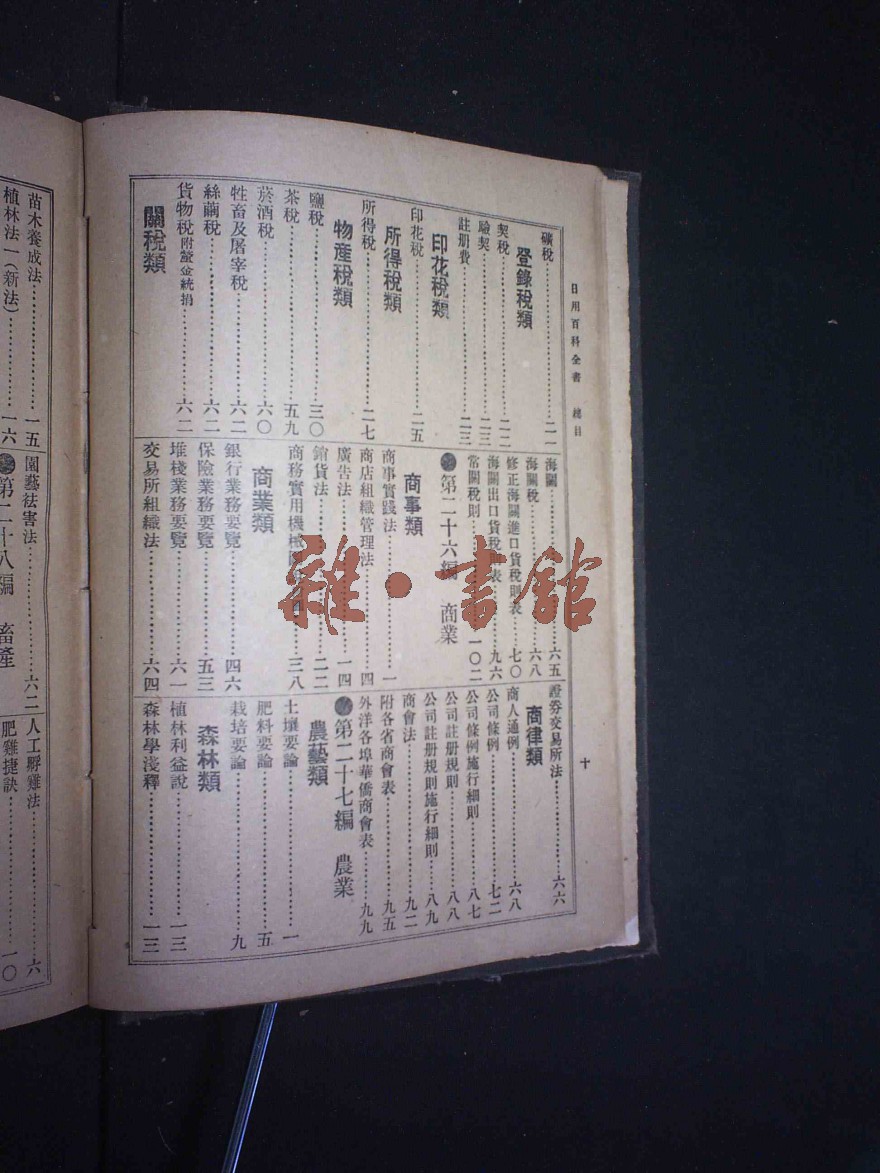 日用百科全書　總目
十
礦稅……二一
登錄稅類
契稅……二二
驗契……二三
註册費……二三
印花稅類
印花稅……二五
所得稅類
所得稅……二七
物產稅類
鹽稅……三〇
茶稅……五九
菸酒稅……六〇
牲畜及屠宰稅……六二
絲繭稅……六二
貨物稅附釐金統捐……六二
關稅類
海關……六五
海關稅……六八
修正海關進口貨稅則表……七〇
海關出口貨稅則表……九六
常關稅則……一〇二
第二十六編　商業
商事類
商事實踐法……一
商店組織管理法……四
廣告法……一四
銷貨法……二二
商務實用機械……三八
商業類
銀行業務要覽……四六
保險業務要覽……五三
堆棧業務要覽……六一
交易所組織法……六四
證券交易所法……六六
商律類
商人通例……六八
公司條例……七二
公司條例施行細則……八七
公司註册規則……八八
公司註册規則施行細則……八九
商會法……九二
附各省商會表……九五
外洋各埠華僑商會表……九九
第二十七編　農業
農藝類
土壤要論……一
肥料要論……五
栽培要論……九
森林類
植林利益說……一三
森林學淺釋……一三
苗木養成法……一五
植林法一(新法)……一六
園藝祛害法……六二
第二十八編　畜產
人工孵雞法……六
肥雞捷訣……一〇
雜·書館